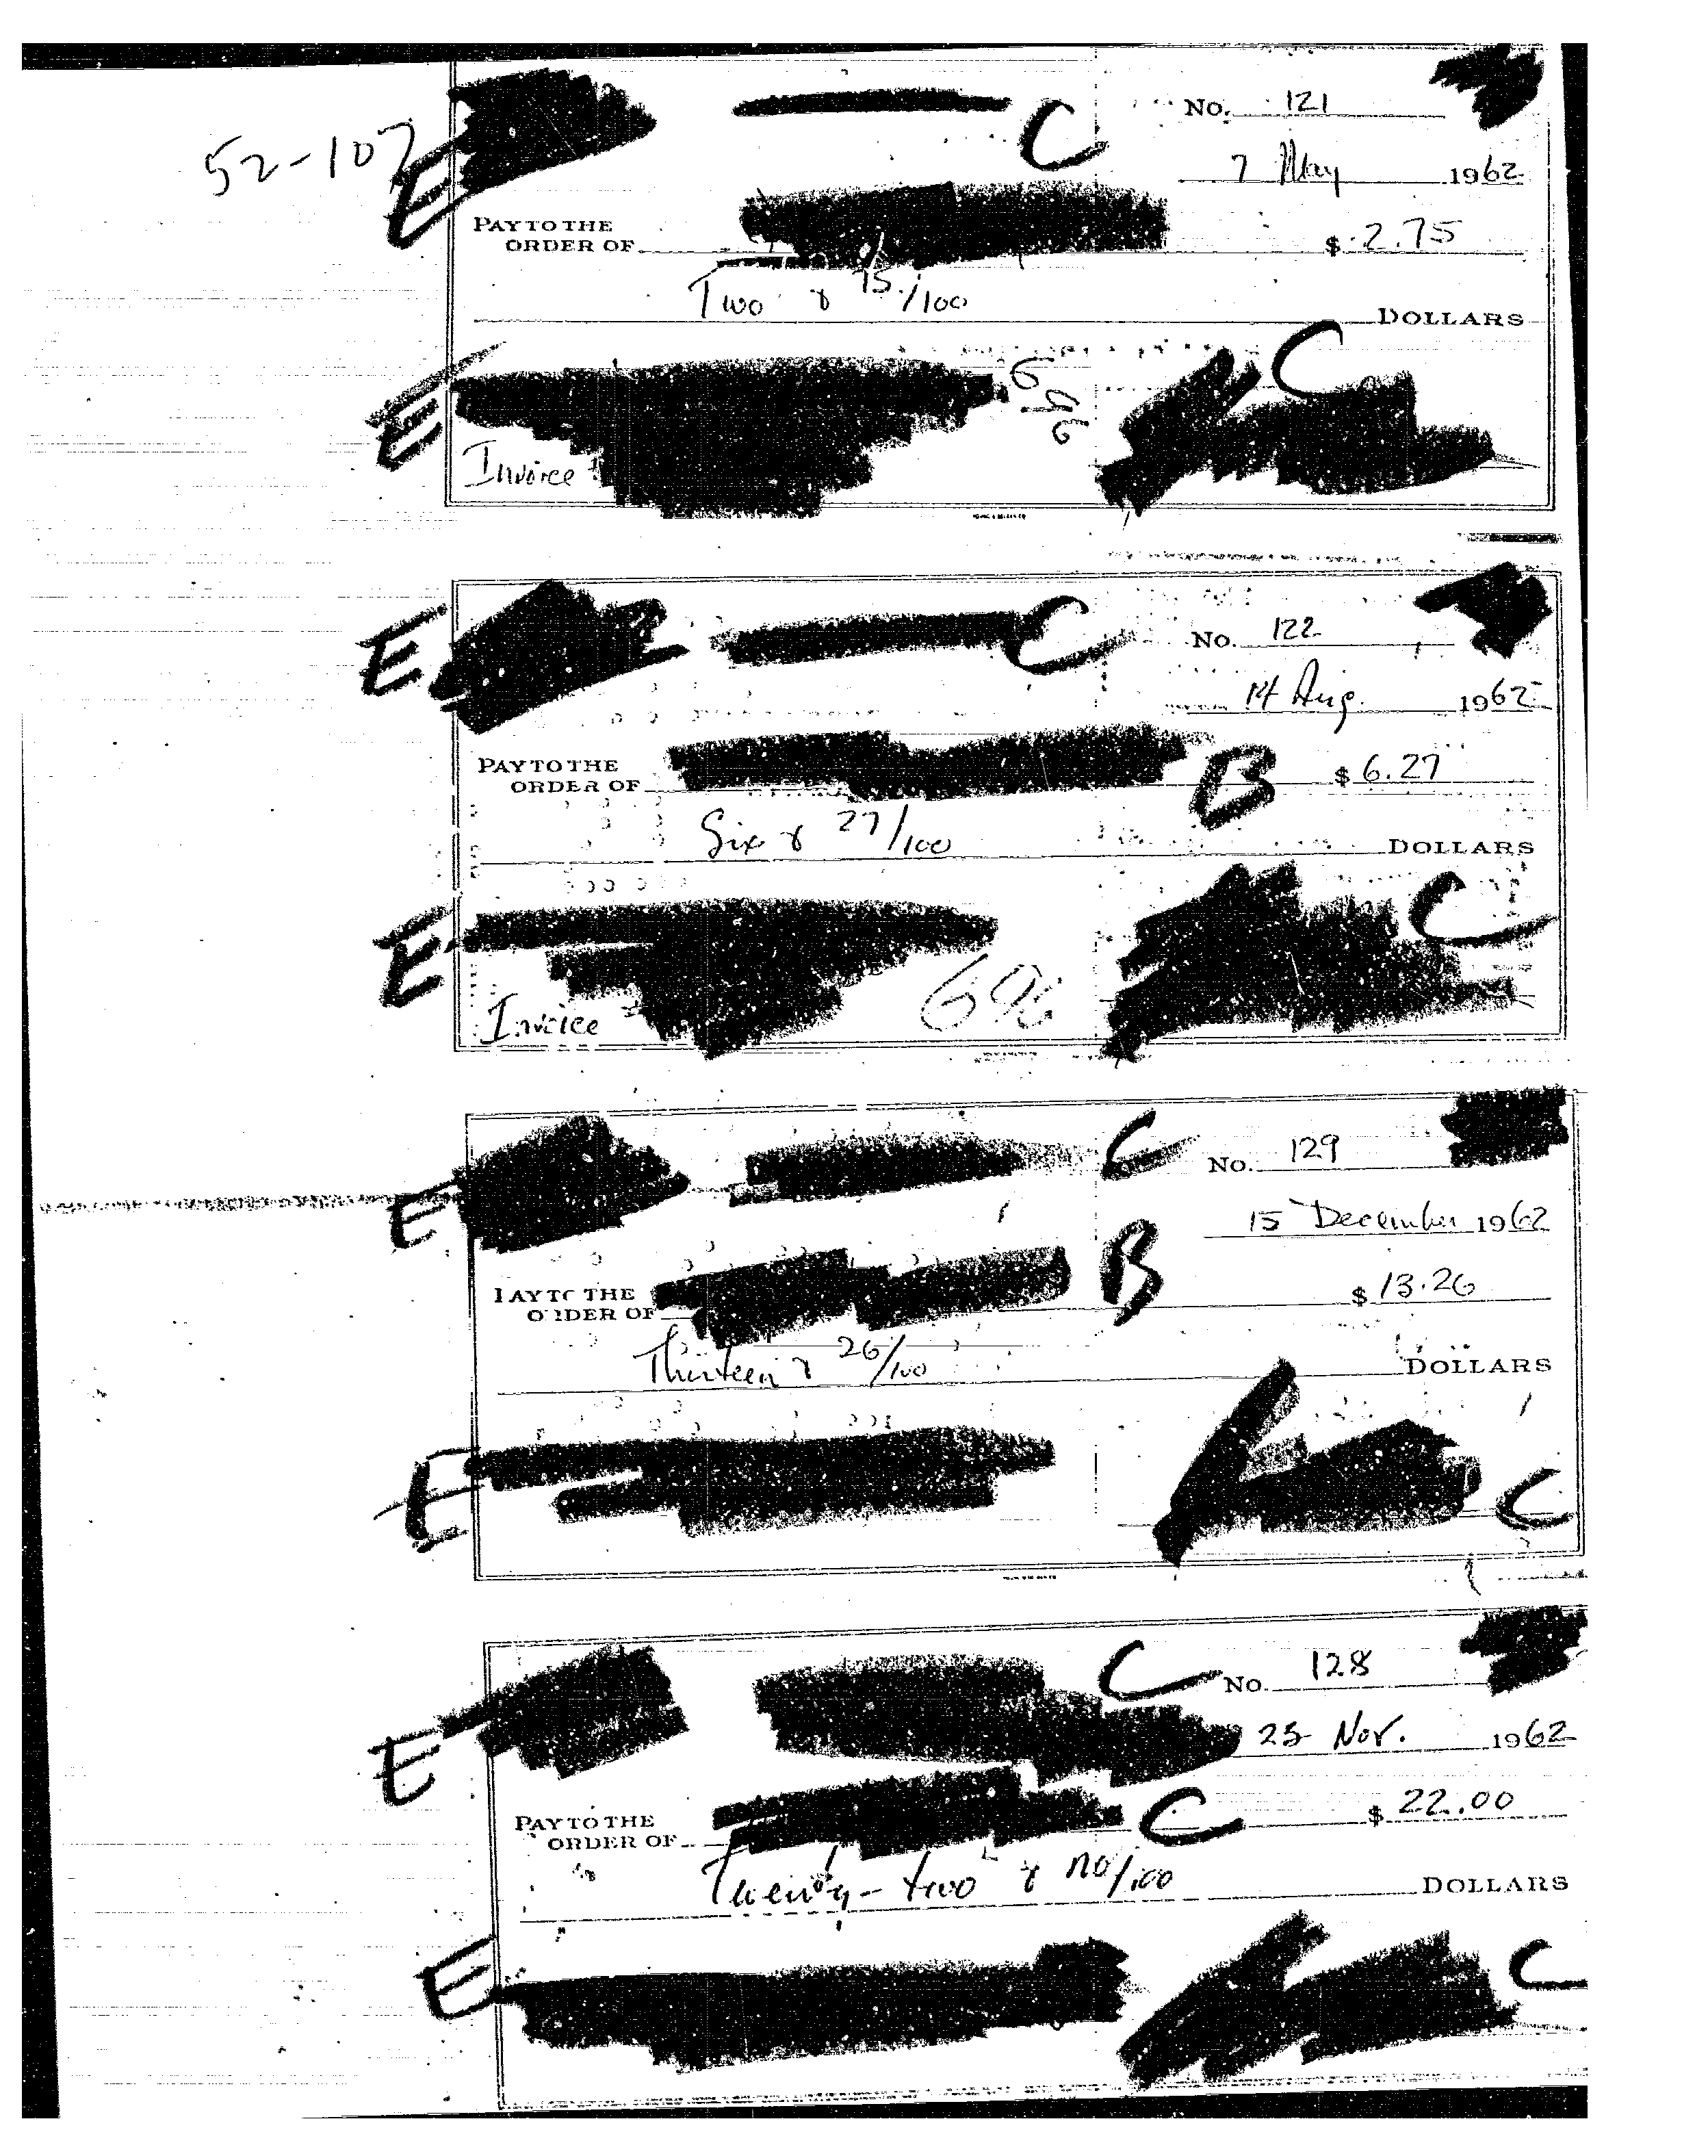 52-107
E
C
No. 121
7 May 1962
PAY TO THE
ORDER OF
$ 2.75
Two & 75/100
DOLLARS
E
C
696
Invoice
E
C
No. 122
14 Aug. 1962
PAY TO THE
ORDER OF
B
$ 6.27
Six & 27/100
DOLLARS
E
C
696
Invoice
E
C
No. 129
15 December 1962
B
PAY TO THE
ORDER OF
$ 13.26
Thirteen & 26/100
DOLLARS
E
C
E
C
No. 128
Nov. 1962
PAY TO THE
ORDER OF
C
$ 22.00
Twenty-two & no/100
DOLLARS
E
C